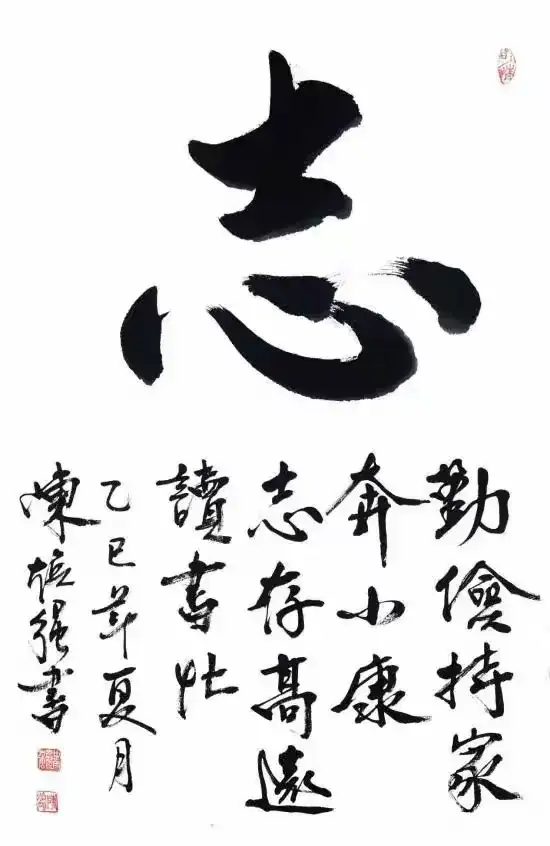 志
勤儉持家
奔小康
志存髙遠
讀書忙
乙巳年夏月
陳强書